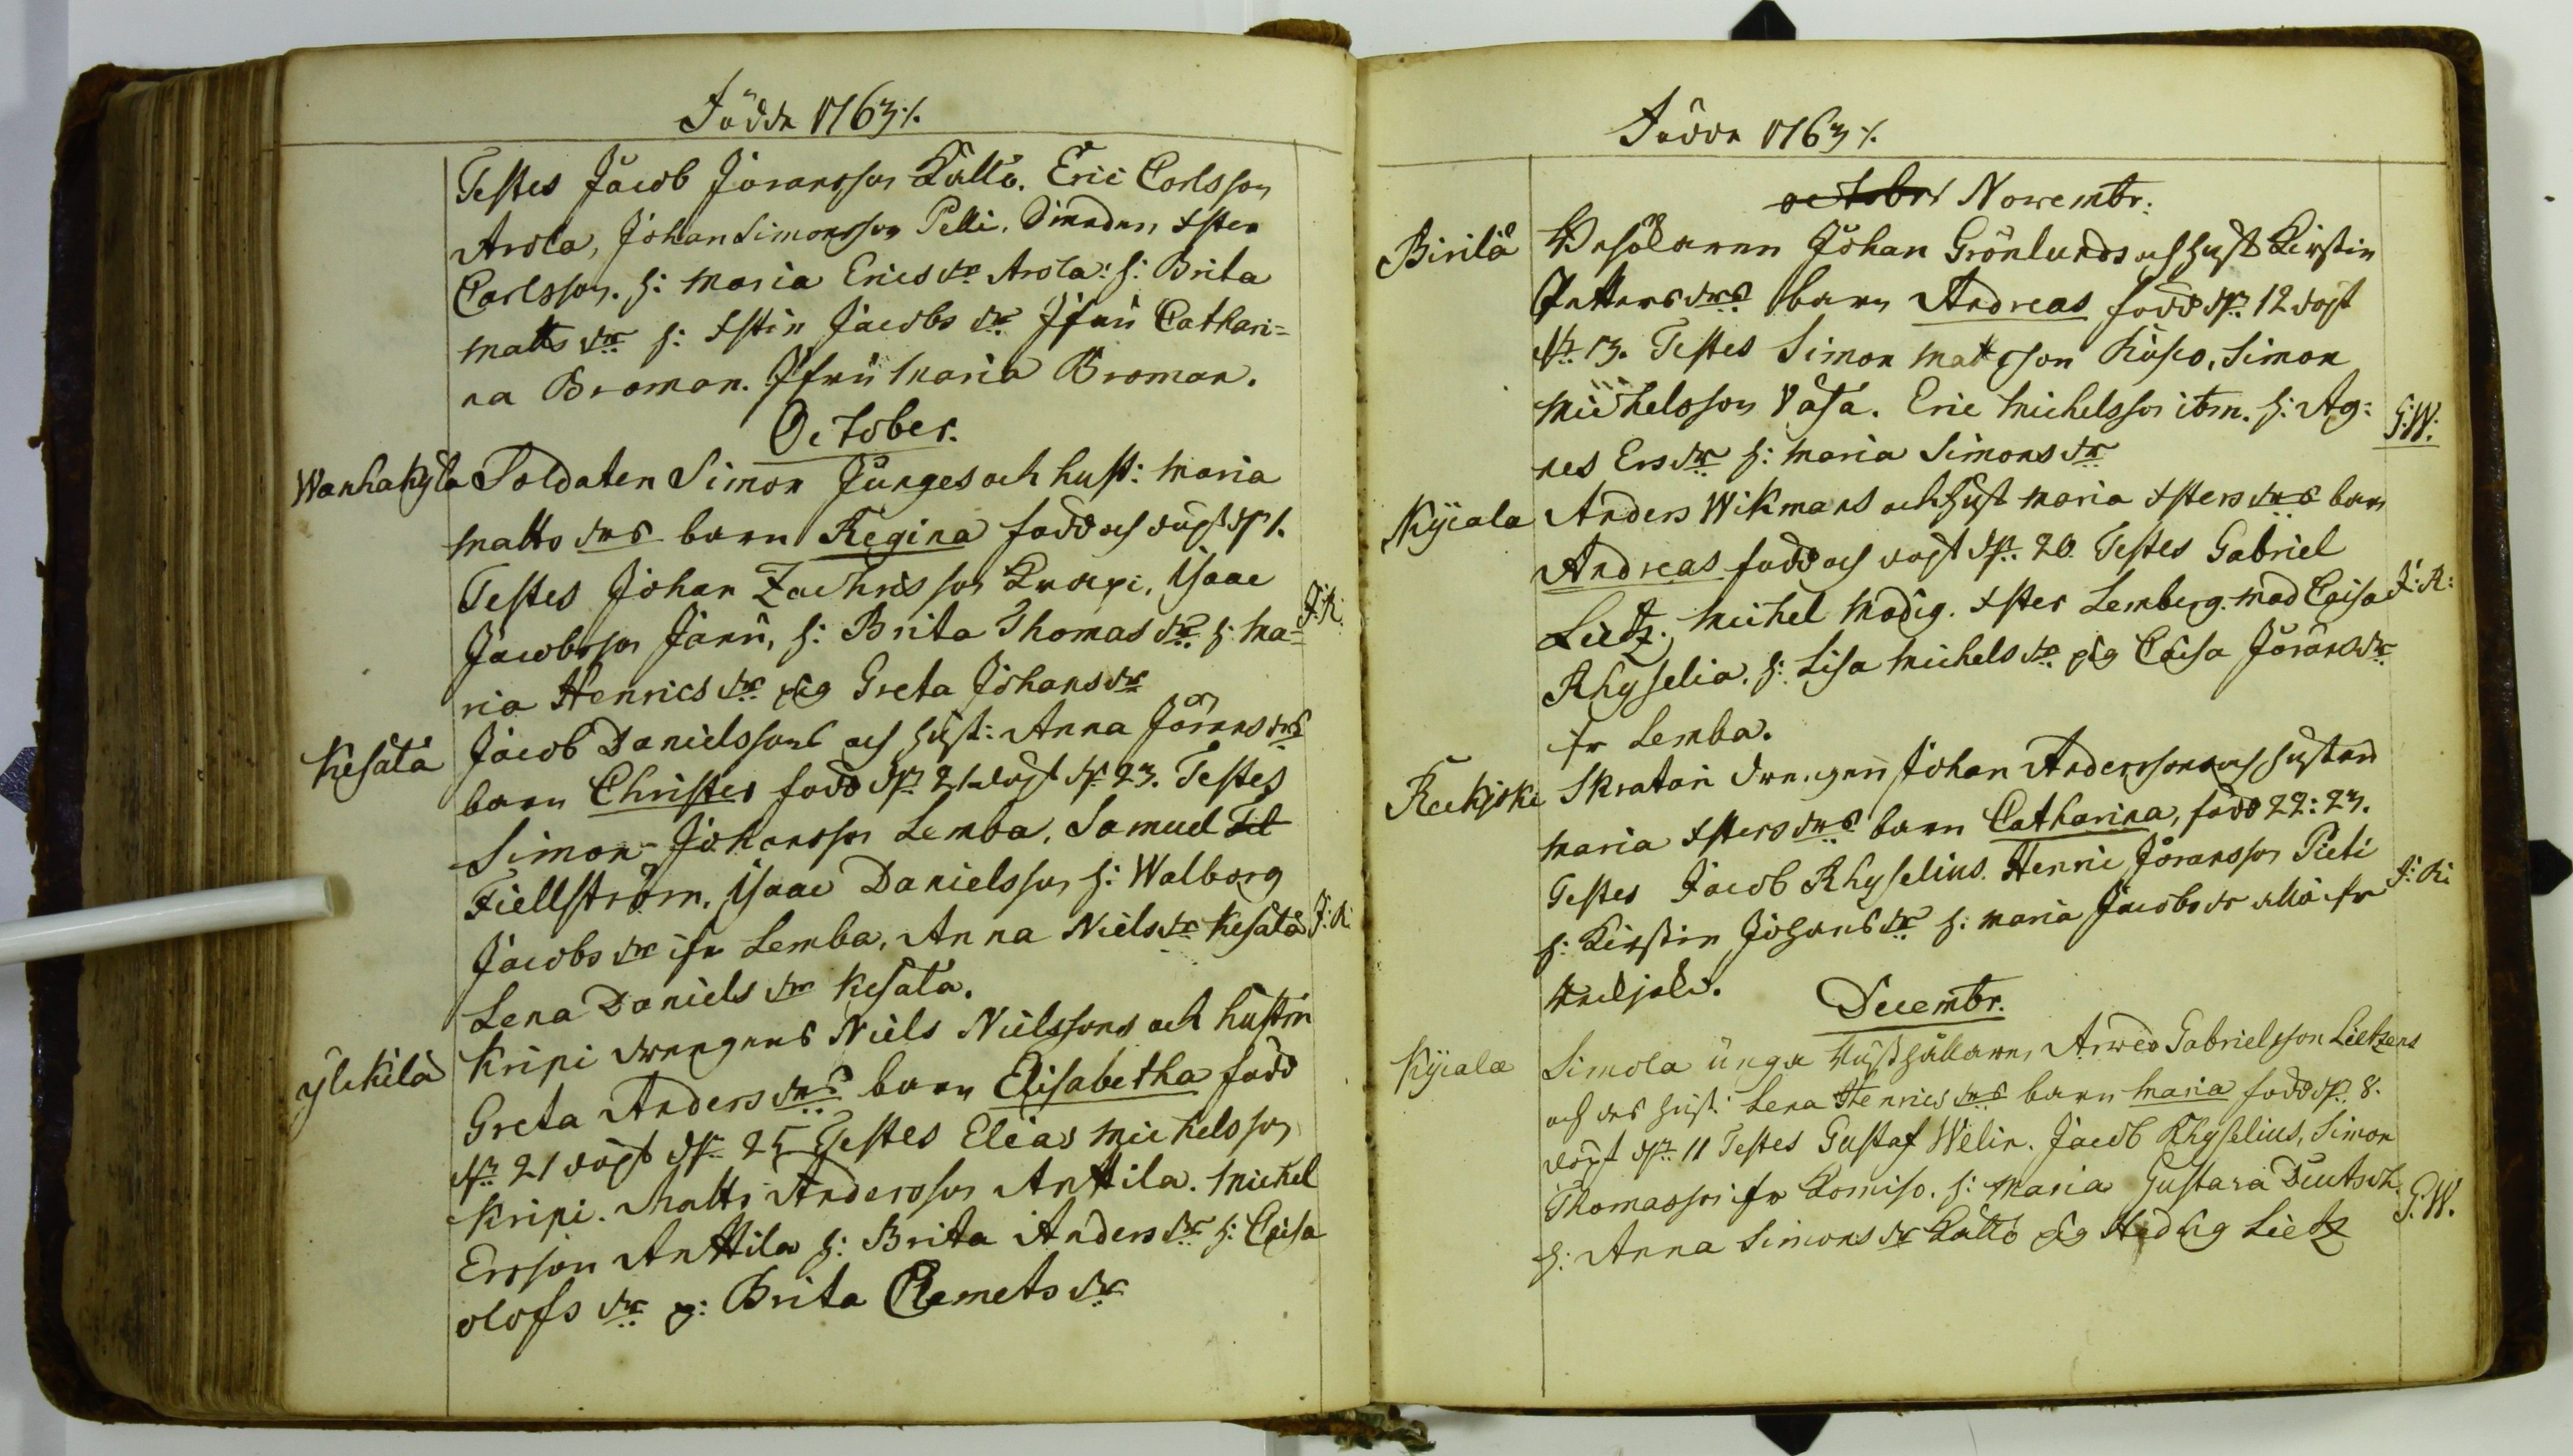 Födde 1763 ⁒.
Testes Jacob Joransson Källö. Eric Carlsson
Arola, Johan Simonsson Pelli, Xster
Carlsson. h: Maria Erics dr Arola: h: Brita
Matts dr h: Xstin Jacobs dr Jfru Cathari=
na Broman. Jfru Maria Broman.
October.
Wanhakyla Soldaten Simon Junges och hust: Maria
Matts drs barn Regina född och döpt dp 1.
Testes Johan Zachrisson Knapi, Isaac
Jacobsson h: Brita Thomas dr h: Ma=
F:R:
ria Henrics dr pig Greta Johans dr
Kesäta Jacob Danielssons och hust: Anna Jörans drs
barn Christer född dp 21 döpt dp 23. Testes
Simon Johansson Lemba, Samuel Fel
Fiellström. Isaac Danielsson h: Walborg
Jacobs dr ifr Lemba, Anna Niels dr Kesäta F:R:
Lena Daniels dr Kesäta.
Ylikilä Kripi drengens Niels Nielssons och hustrn
Greta Anders drs barn Elisabetha född
dp 21 döpt dp 25 Testes Elias Michelsson
Kripi. Matts Andersson Anttila. Michel
Ersson Anttila h: Brita Anders dr h: Caisa
olofs dr p: Brita Clemets dr
Födde 1763 ⁒.
october Novembr:
Birilä Johan Grönlunds och hust Kirstin
drs barn Andreas född dp 12 döpt
dp 13. Testes Simon Mattsson Simon
Michelsson Vasa. Eric Michelsson itm. h: Ag=
G:W:
nes Ers dr h: Maria Simons dr
Kyiala Anders Wikmans och hust Maria Xsters drs barn
Andreas född och döpt dp. 20 Testes Gabriel
Lietz. Michel Modig. Xster Lemberg. Mad Caisa F:R:
Rhyselia. h: Lisa Michels dr pig Caisa Jörans dr
ifr Lemba.
Skratari drengen Johan Anderssons och hustrus
Maria Xsters drs barn Catharina, född 22: 23.
Testes Jacob Rhyselius. Henric Jöransson Pieti
F:R:
h: Kirstin Johans dr h: Maria Jacobs dr alla ifr
Decembr.
Kyiala Simola unga husshållaren Arwed Gabrielsson Lietzens
och des hust: Lena Henrics drs barn Maria född dp. 8.
döpt dp. 11 Testes Gustaf Welin. Jacob Rhyselius, Simon
Thomasson ifr h: Maria Gustava Deutsch.
G:W.
h: Anna Simons dr Källö pig Hedvig Lietz